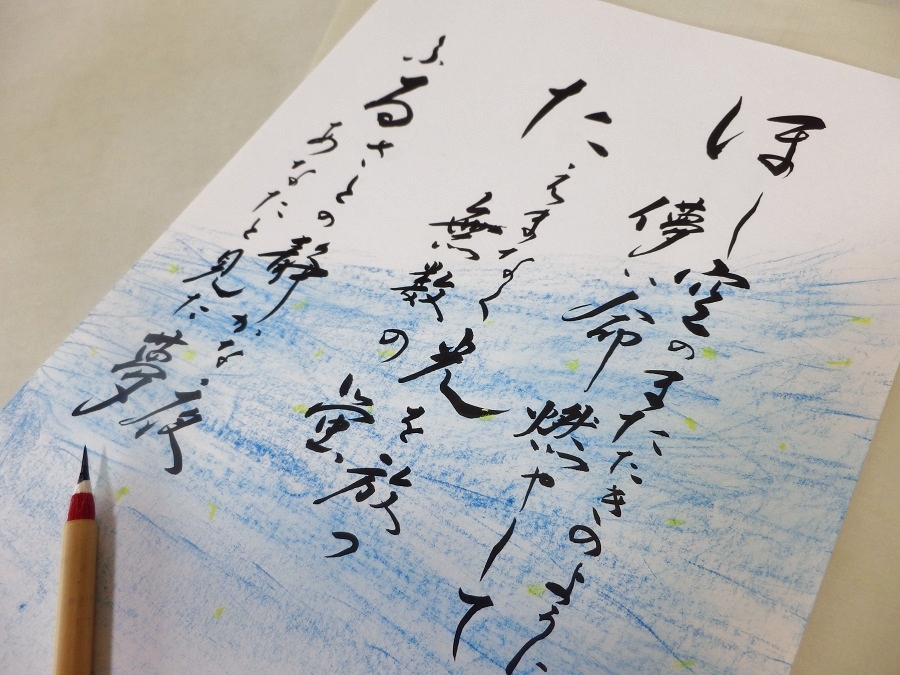 ほし空のまたたきのように
儚い命燃やして
たえまなく光を放つ
無数の蛍
ふるさとの静かな夜
あなたと見た夢